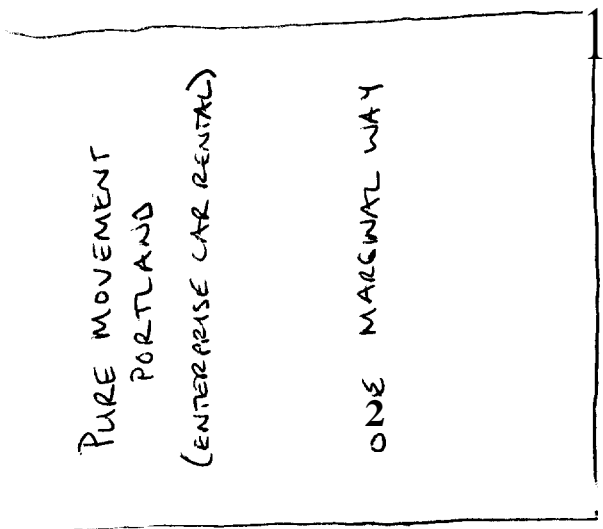 PURE MOVEMENT
PORTLAND
(ENTERPRISE CAR RENTAL)
ONE MARGINAL WAY
1